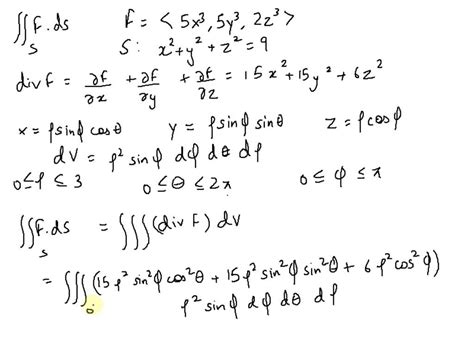 ∬_S F.ds F = < 5x³, 5y³, 2z³ >
S : x² + y² + z² = 9
div F = ∂F/∂x + ∂F/∂y + ∂F/∂z = 15x² + 15y² + 6z²
x = ρ sinφ cosθ y = ρ sinφ sinθ z = ρ cosφ
dV = ρ² sinφ dφ dθ dρ
0 ≤ ρ ≤ 3 0 ≤ θ ≤ 2π 0 ≤ φ ≤ π
∬_S F.ds = ∭ (div F) dV
= ∭_0 (15ρ² sin²φ cos²θ + 15ρ² sin²φ sin²θ + 6ρ² cos²φ)
ρ² sinφ dφ dθ dρ